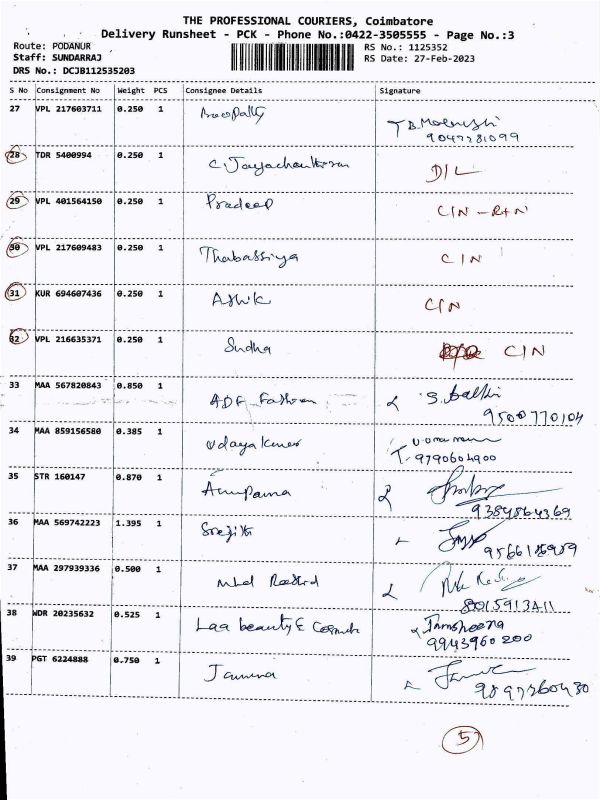 THE PROFESSIONAL COURIERS, Coimbatore
Delivery Runsheet - PCK - Phone No.:0422-3505555 - Page No.:3
Route: PODANUR RS No.: 1125352
Staff: SUNDARRAJ RS Date: 27-Feb-2023
DRS No.: DCJB112535203
S No Consignment No Weight PCS Consignee Details Signature
27 VPL 217603711 0.250 1
28 TDR 5400994 0.250 1 C. Jayachandran D/L
29 VPL 401564150 0.250 1 Pradeep C/N - R+N
30 VPL 217609483 0.250 1 Thabassiya C/N
31 KUR 694607436 0.250 1 Ashik C/N
32 VPL 216635371 0.250 1 Sudha C/N
33 MAA 567820843 0.850 1 ADF Fashion
9500770104
34 MAA 859156580 0.385 1 Udaya Kumar
9790604900
35 STR 160147 0.870 1 Anupama
9384864369
36 MAA 569742223 1.395 1
37 MAA 297939336 0.500 1 Mhd Rashid
38 WDR 20235632 0.525 1 Laa beauty & Jamsheena
9943960200
39 PGT 6224888 0.750 1 Jamuna
5